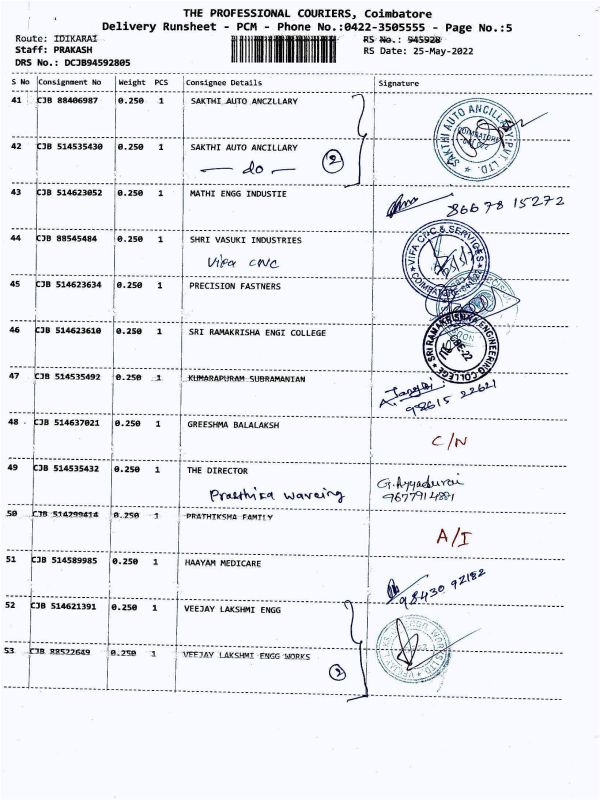 THE PROFESSIONAL COURIERS, Coimbatore
Delivery Runsheet - PCM - Phone No.:0422-3505555 - Page No.:5
Route: IDIKARAI RS No.: 945928
Staff: PRAKASH RS Date: 25-May-2022
DRS No.: DCJB94592805
S No Consignment No Weight PCS Consignee Details Signature
41 CJB 88406987 0.250 1 SAKTHI AUTO ANCZLLARY
SAKTHI AUTO ANCILLARY PVT. LTD.
COIMBATORE
42 CJB 514535430 0.250 1 SAKTHI AUTO ANCILLARY
do 2
43 CJB 514623052 0.250 1 MATHI ENGG INDUSTIE
86678 15272
44 CJB 88545484 0.250 1 SHRI VASUKI INDUSTRIES
Vifa CNC
VIFA CPC & SERVICES
45 CJB 514623634 0.250 1 PRECISION FASTNERS
46 CJB 514623610 0.250 1 SRI RAMAKRISHA ENGI COLLEGE
SRI RAMAKRISHNA ENGINEERING COLLEGE
47 CJB 514535492 0.250 1 KUMARAPURAM SUBRAMANIAN
98615 22621
48 CJB 514637021 0.250 1 GREESHMA BALALAKSH
C/N
49 CJB 514535432 0.250 1 THE DIRECTOR
G. Ayyadurai
9677914891
50 CJB 514299414 0.250 1 PRATHIKSHA FAMILY
A/I
51 CJB 514589985 0.250 1 HAAYAM MEDICARE
98430 92182
52 CJB 514621391 0.250 1 VEEJAY LAKSHMI ENGG
53 CJB 88522649 0.250 1 VEEJAY LAKSHMI ENGG WORKS
2